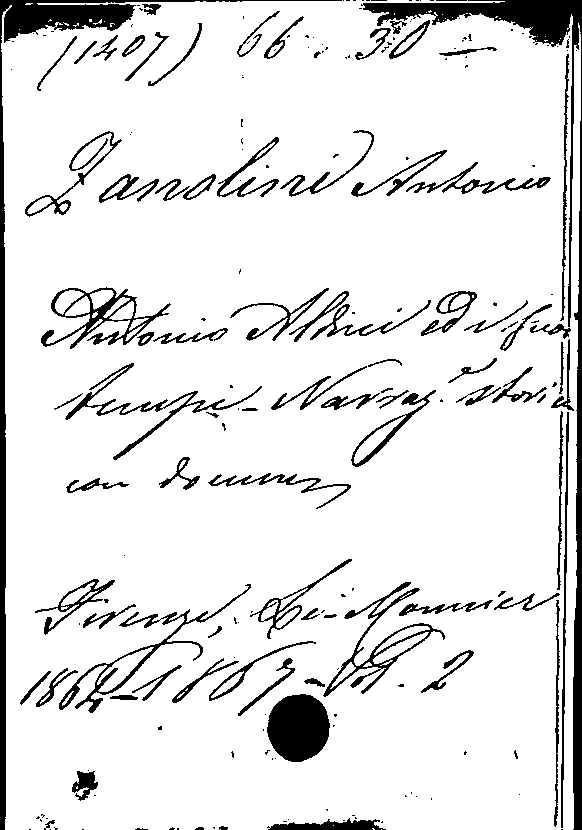 (1407) 66. 30 —
Zanolini Antonio
Antonio Aldini ed i suoi
tempi - Narraz.e storica
con docum
Firenze, Le-Monnier
1864-1867 - Vol. 2